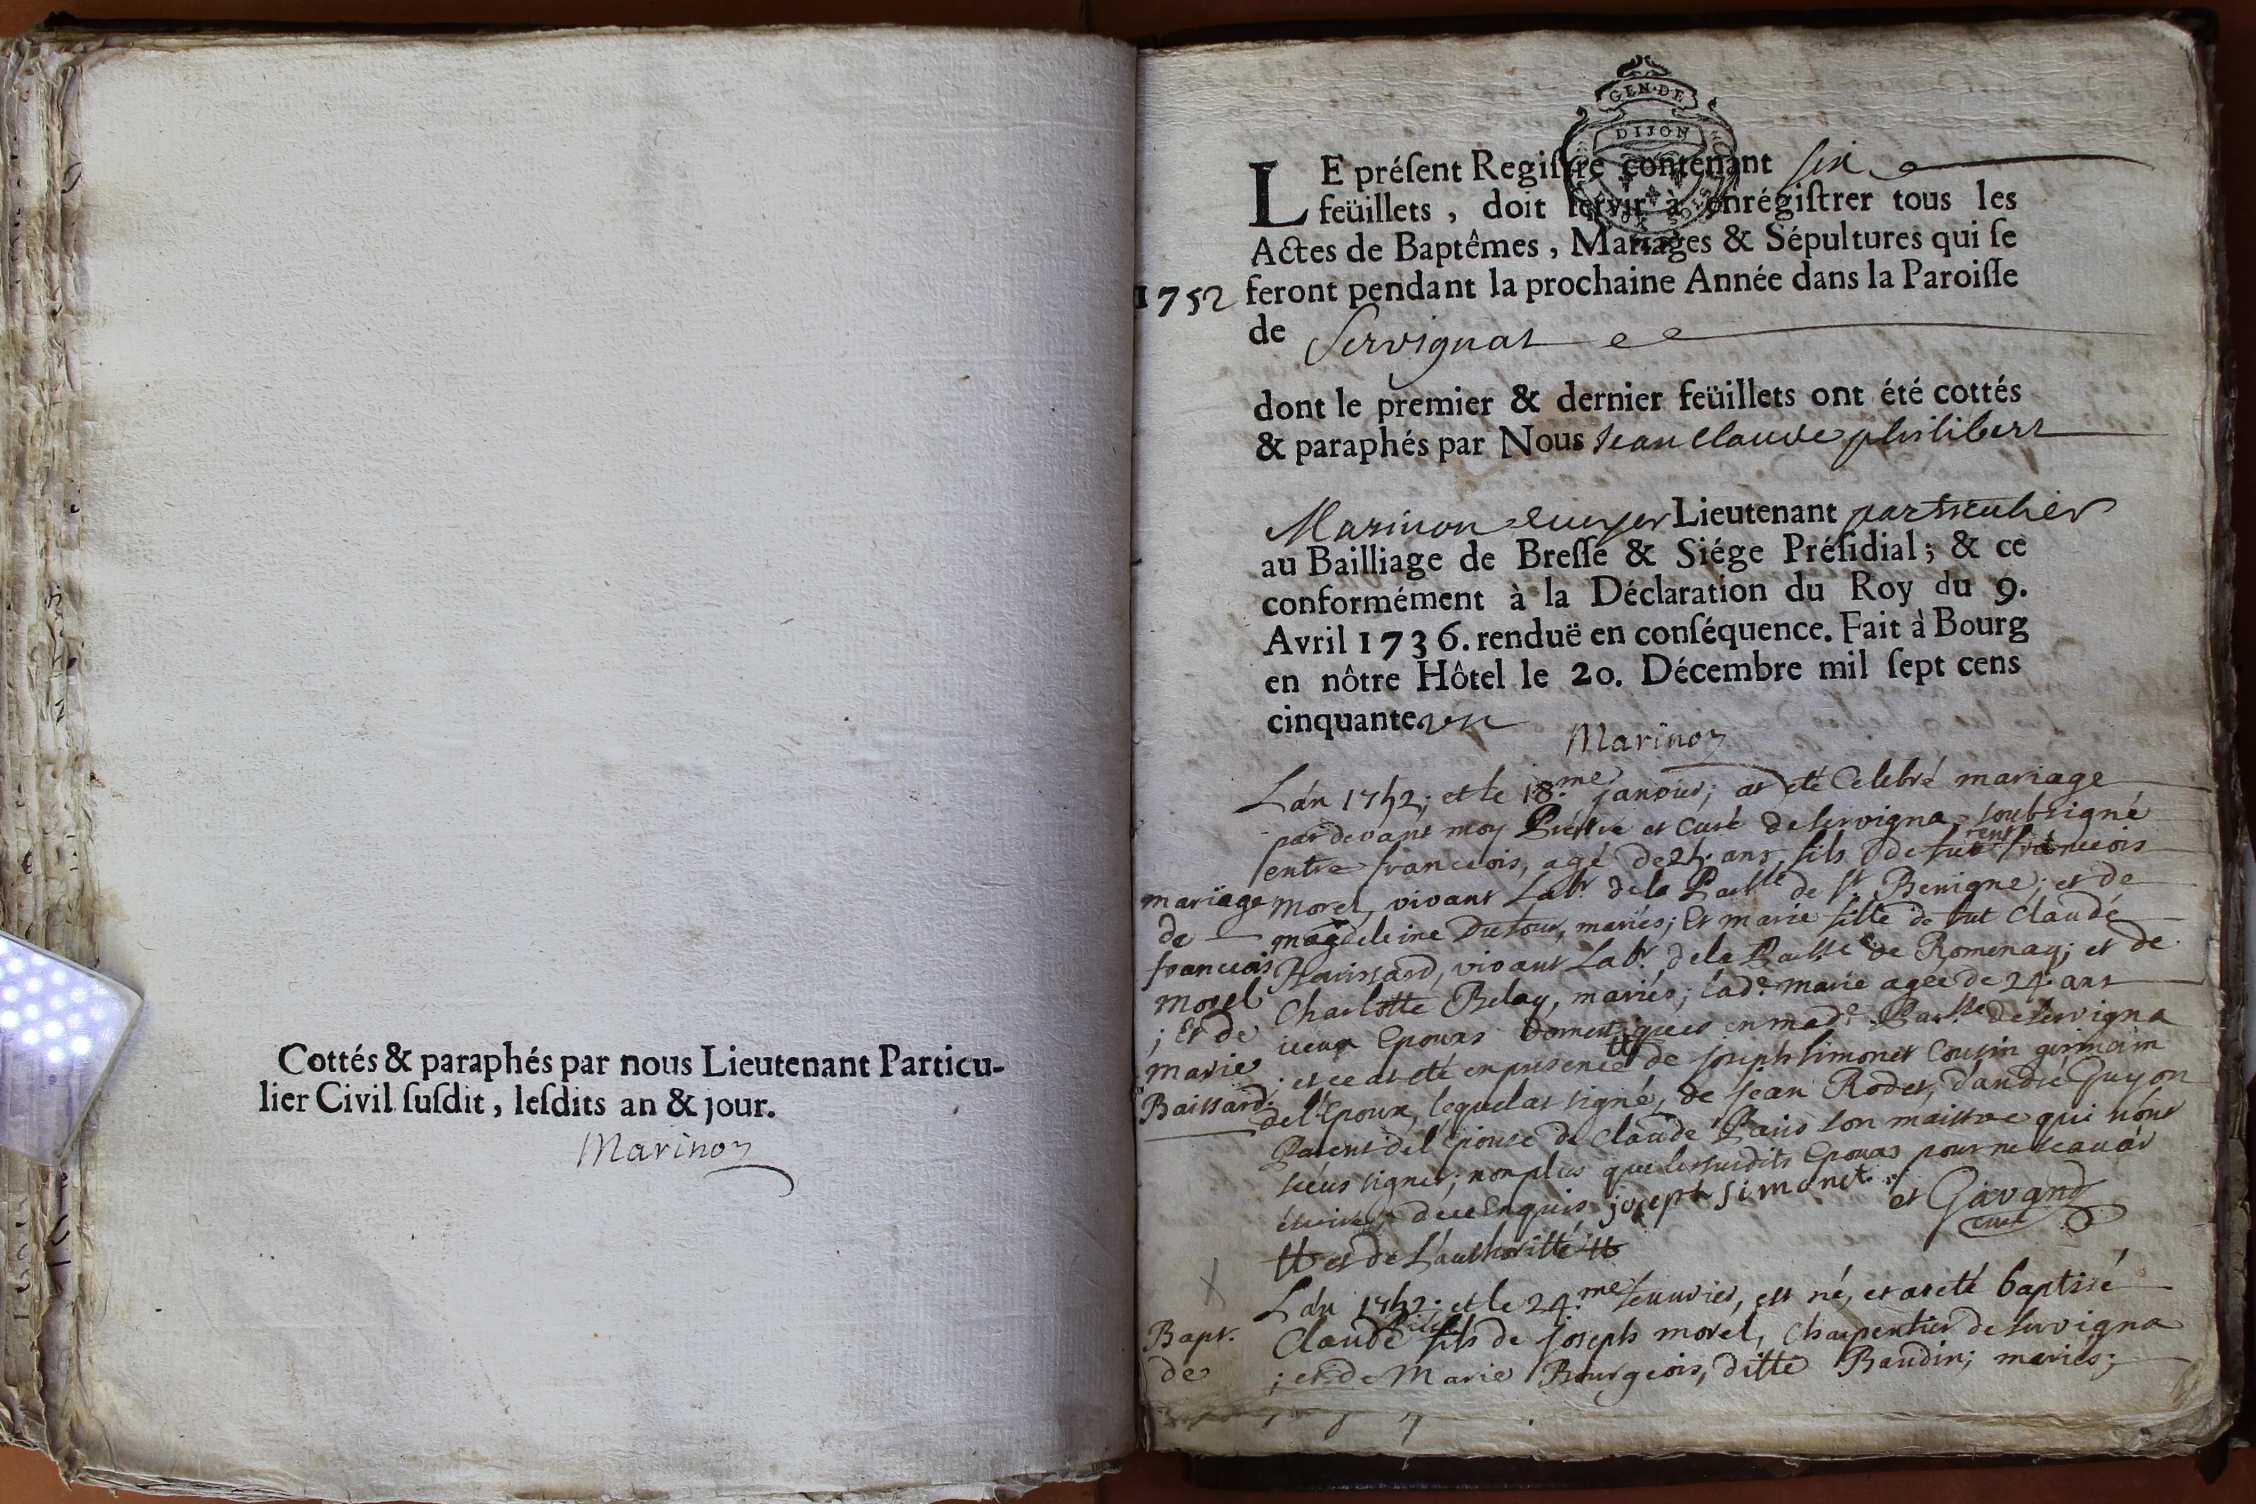 Cottés & paraphés par nous Lieutenant Particu-
lier Civil ſuſdit, leſdits an & jour.
Marinon
GEN·DE
DIJON
LE préſent Regiſtre contenant six
feüillets, doit ſervir à enrégiſtrer tous les
Actes de Baptêmes, Mariages & Sépultures qui ſe
1752 feront pendant la prochaine Année dans la Paroiſſe
de Servignat
dont le premier & dernier feüillets ont été cottés
& paraphés par Nous Jean Claude philibert
Marinon Ecuyer Lieutenant particulier
au Bailliage de Breſſe & Siége Préſidial; & ce
conformément à la Déclaration du Roy du 9.
Avril 1736. renduë en conſéquence. Fait à Bourg
en nôtre Hôtel le 20. Décembre mil ſept cens
cinquante un
Marinon
L'an 1752; et le 18.me janvier; at eté Celebré mariage
pardevant moy Prêtre et Curé de servigna soubsigné
entre francois, agé de 25. ans, fils de francois
morel, vivant Labr. dela Paisse de st Benigne; et de
magdeleine Dutour, mariés; Et marie fille de fut Claude
Bauissard, vivant Labr. dela Paisse de Romenay; et de
Charlotte Belay, mariés; lad.e marie agée de 24. ans
iceux Epoux Domestiques en mad.e Paisse de servigna
; et ce at eté en presence tt de joseph simonet Cousin germain
del'Epoux, lequel at signé, de jean Rodet, d'andré Guyon
Parent del'Epouse de Claude Pauis son maistre qui n'ont
sceus signer; non plus que les susdits Epoux pour ne scavoir
écrire, de ce Enquis joseph simonet et Gavand
curé
tt et de L'authorité tt
mariage
de
francois
morel
; Et de
marie
Baissard.
L'an 1752; et le 24.me feuvrier, est né, et at eté baptisé
Claude fils de joseph morel, Charpentier de servigna
; et de Marie Bourgeois, ditte Baudin; mariés;
Bapt.
de